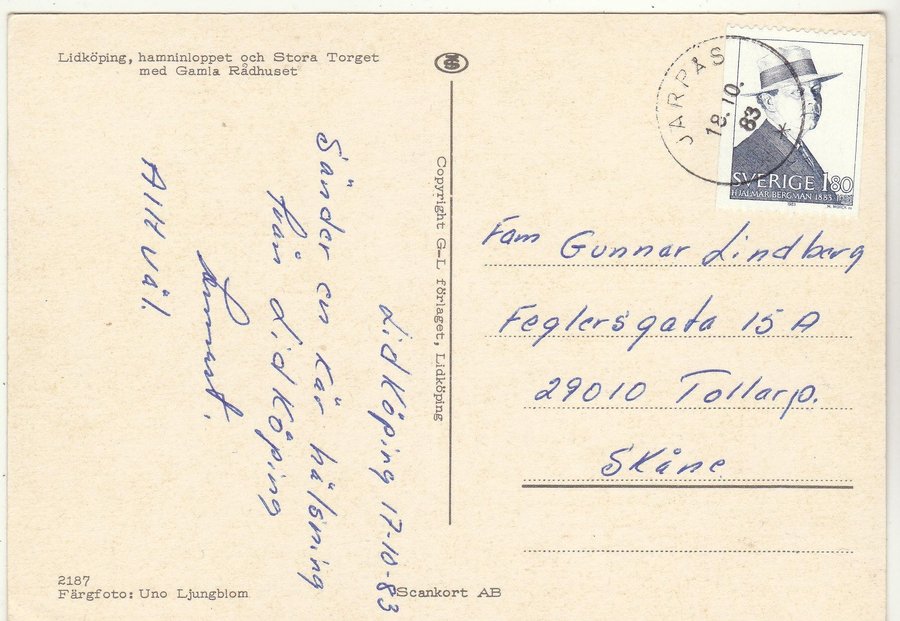 Lidköping, hamninloppet och Stora Torget
med Gamla Rådhuset
JÄRPÅS
18.10.
83
SVERIGE 180
HJALMAR BERGMAN 1883-1931
Lidköping 17-10-83
Sänder en kär hälsning
från Lidköping
Allt väl.
Copyright G-L förlaget, Lidköping
Fam Gunnar Lindberg
Feglersgata 15 A
29010 Tollarp.
Skåne
2187
Färgfoto: Uno Ljungblom
Scankort AB